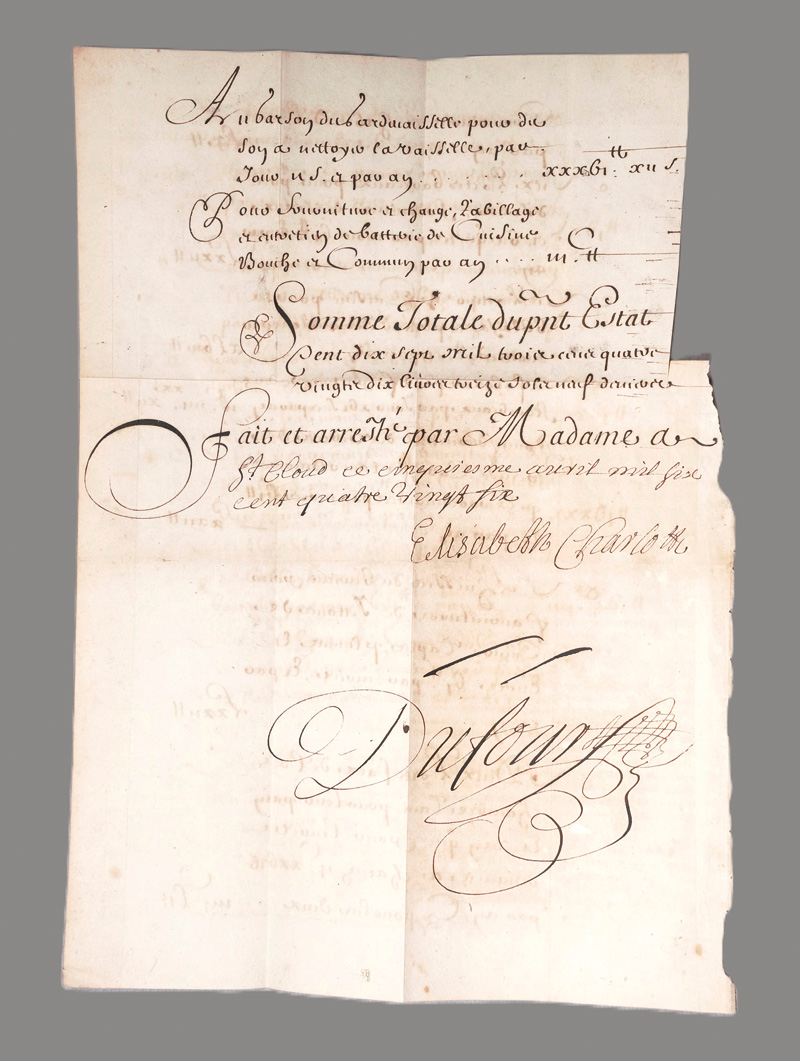 Au garson du gardvaisselle pour du
son a nettoyer la vaisselle, par
Jour ii s. et par an . . . . . . . . xxxvi tt. xii s.
Pour fourniture et change, Rabillage
et entretien de batterie de Cuisine
Bouche et Commun par an . . . . iii C tt
Somme Totale du pnt Estat
Cent dix sept mil trois cens quatre
vingts dix livres treize sols neuf deniers
Fait et arresté par Madame a
St Cloud ce cinquiesme avril mil six
cent quatre vingt six
Elisabeth Charlotte
Dufour